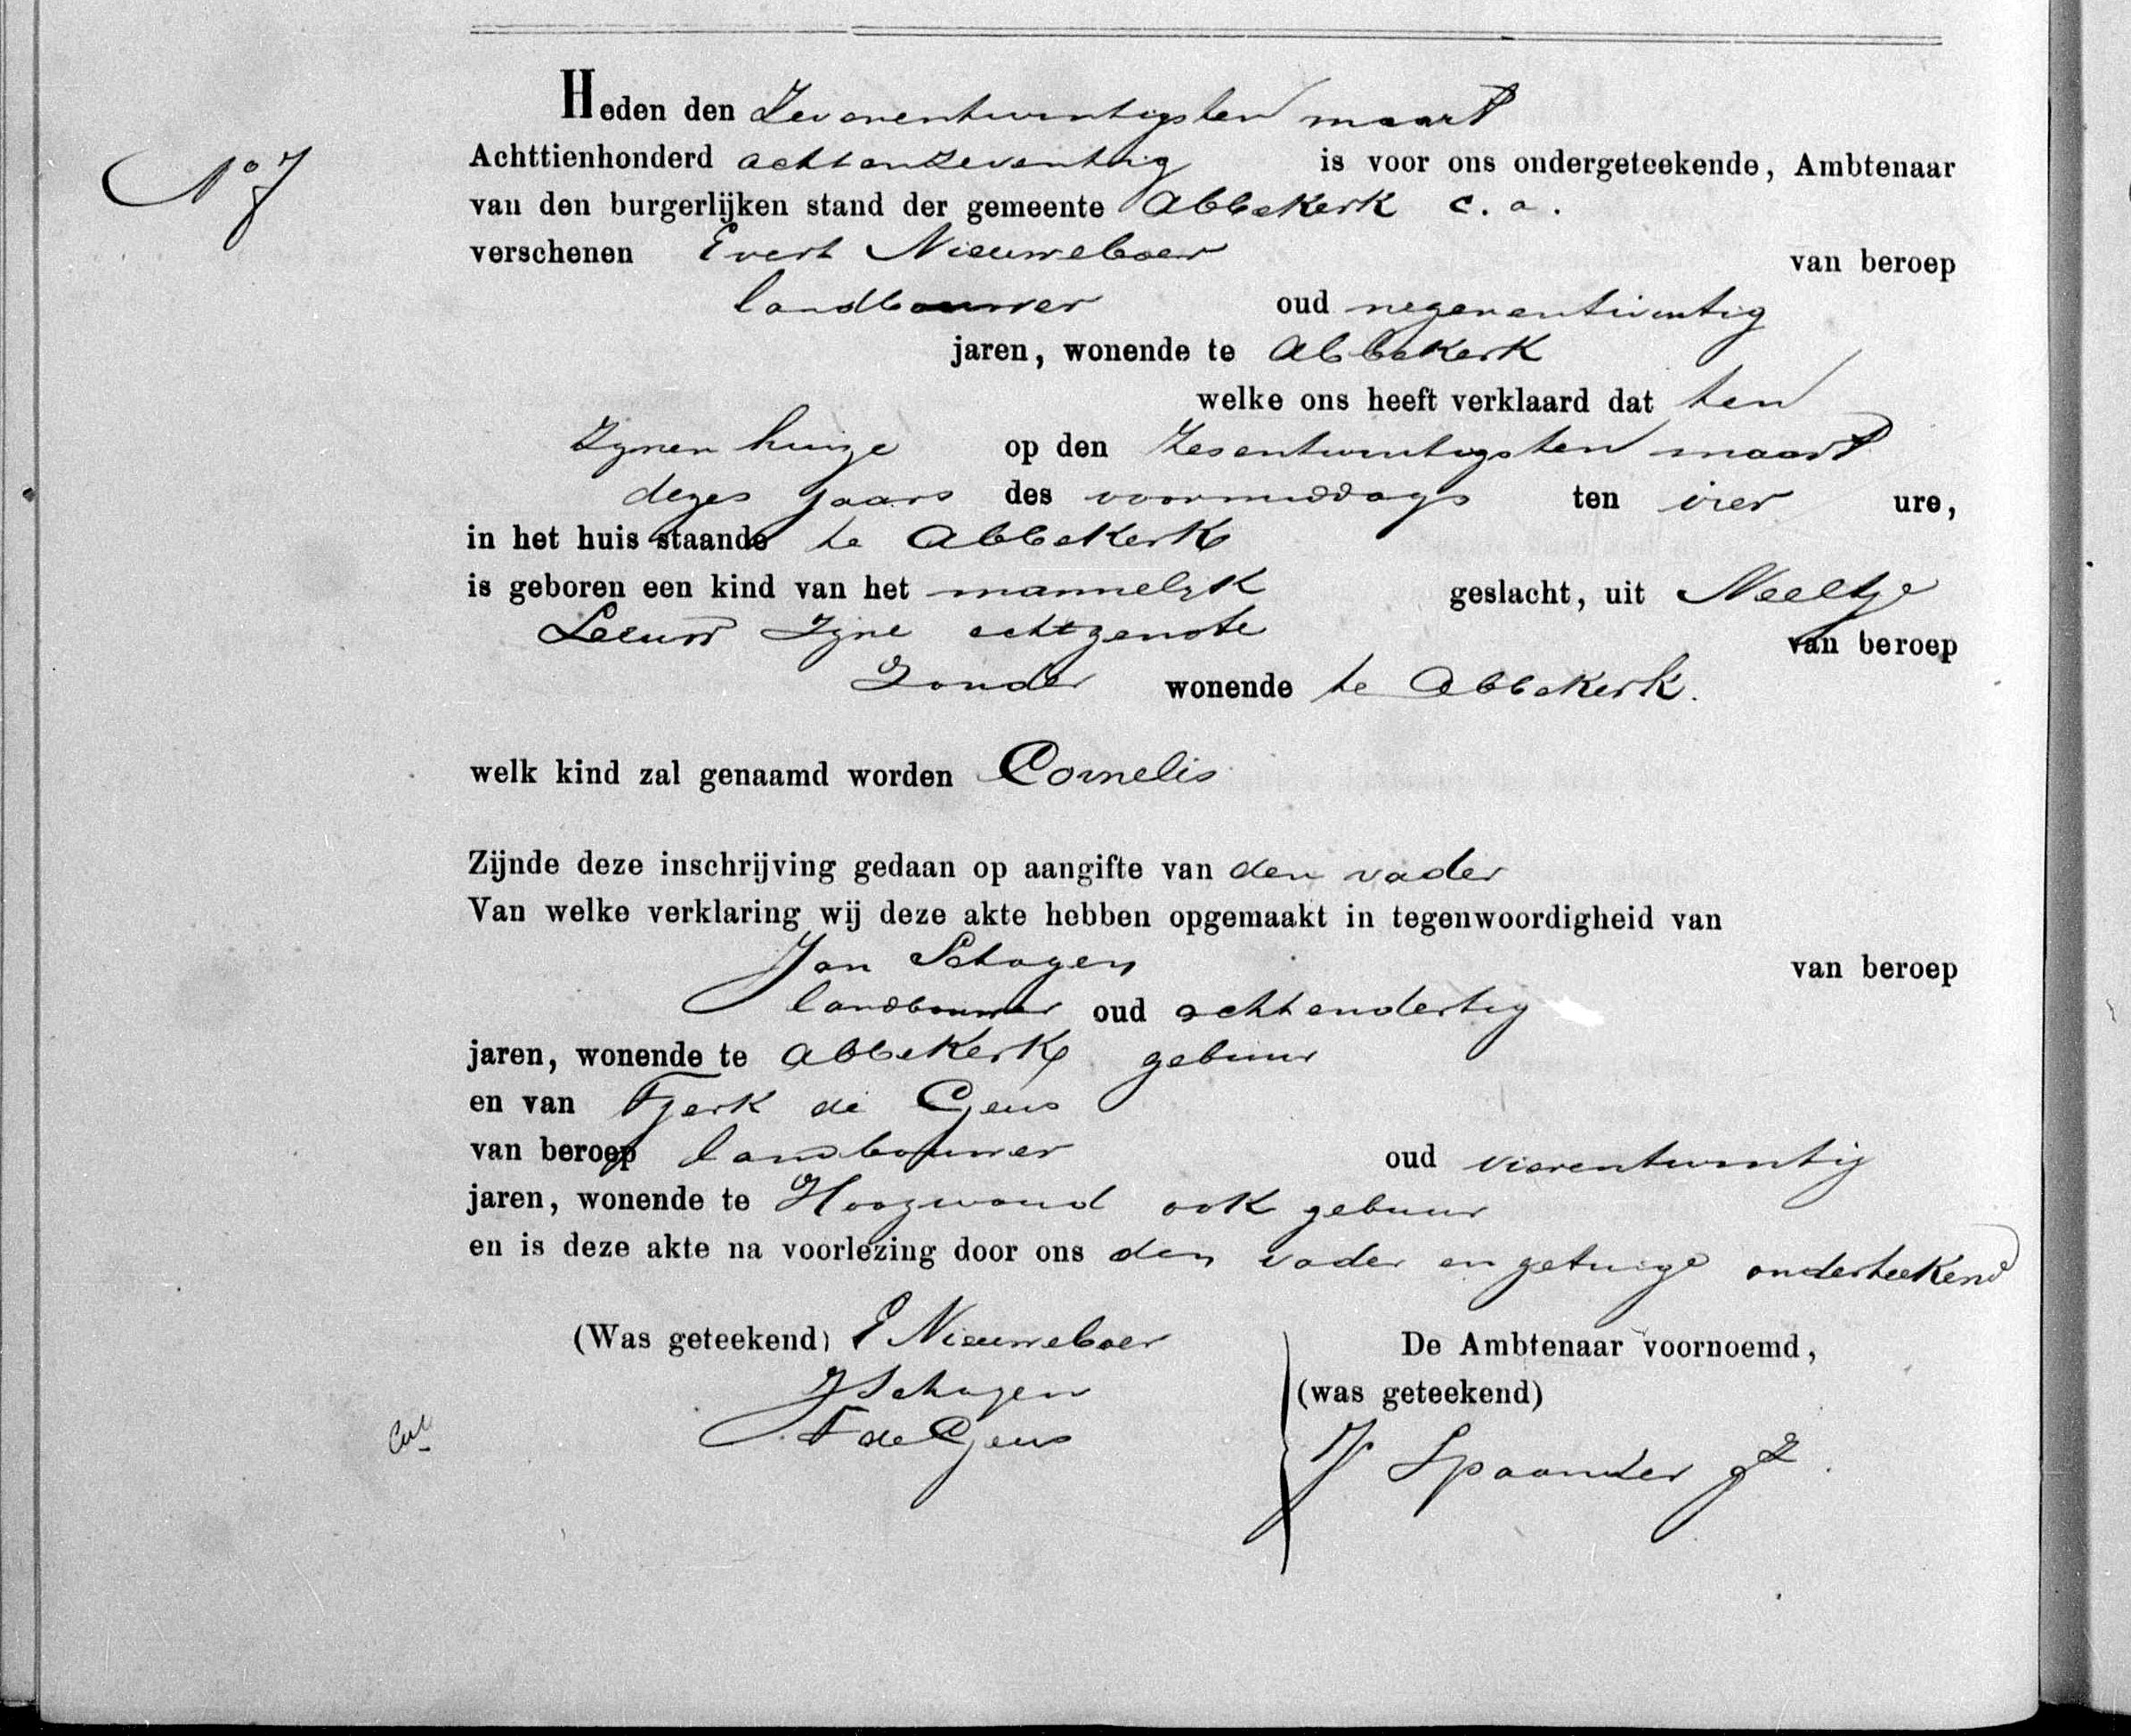 Heden den Zevenentwintigsten maart
Achttienhonderd achtenzeventig is voor ons ondergeteekende, Ambtenaar
van den burgerlijken stand der gemeente Abbekerk c. a.
verschenen Evert Nieuweboer van beroep
landbouwer oud negenentwintig
jaren, wonende te Abbekerk
welke ons heeft verklaard dat ten
Zynen huize op den Zesentwintigsten maart
dezes jaars des voormiddags ten vier ure,
in het huis staande te Abbekerk
is geboren een kind van het mannelyk geslacht, uit Neeltje
Leeuw Zyne echtgenote van beroep
Zonder wonende te Abbekerk.
welk kind zal genaamd worden Cornelis
Zijnde deze inschrijving gedaan op aangifte van den vader
Van welke verklaring wij deze akte hebben opgemaakt in tegenwoordigheid van
Jan Schagen van beroep
landbouwer oud achtendertig
jaren, wonende te Abbekerk gebuur
en van Tjerk de Geus
van beroep landbouwer oud vierentwintig
jaren, wonende te Hoogwoud ook gebuur
en is deze akte na voorlezing door ons den vader en getuige onderteekend
(Was geteekend) E Nieuweboer De Ambtenaar voornoemd,
J Schagen (was geteekend)
T de Geus J Spaander gz.
No 7